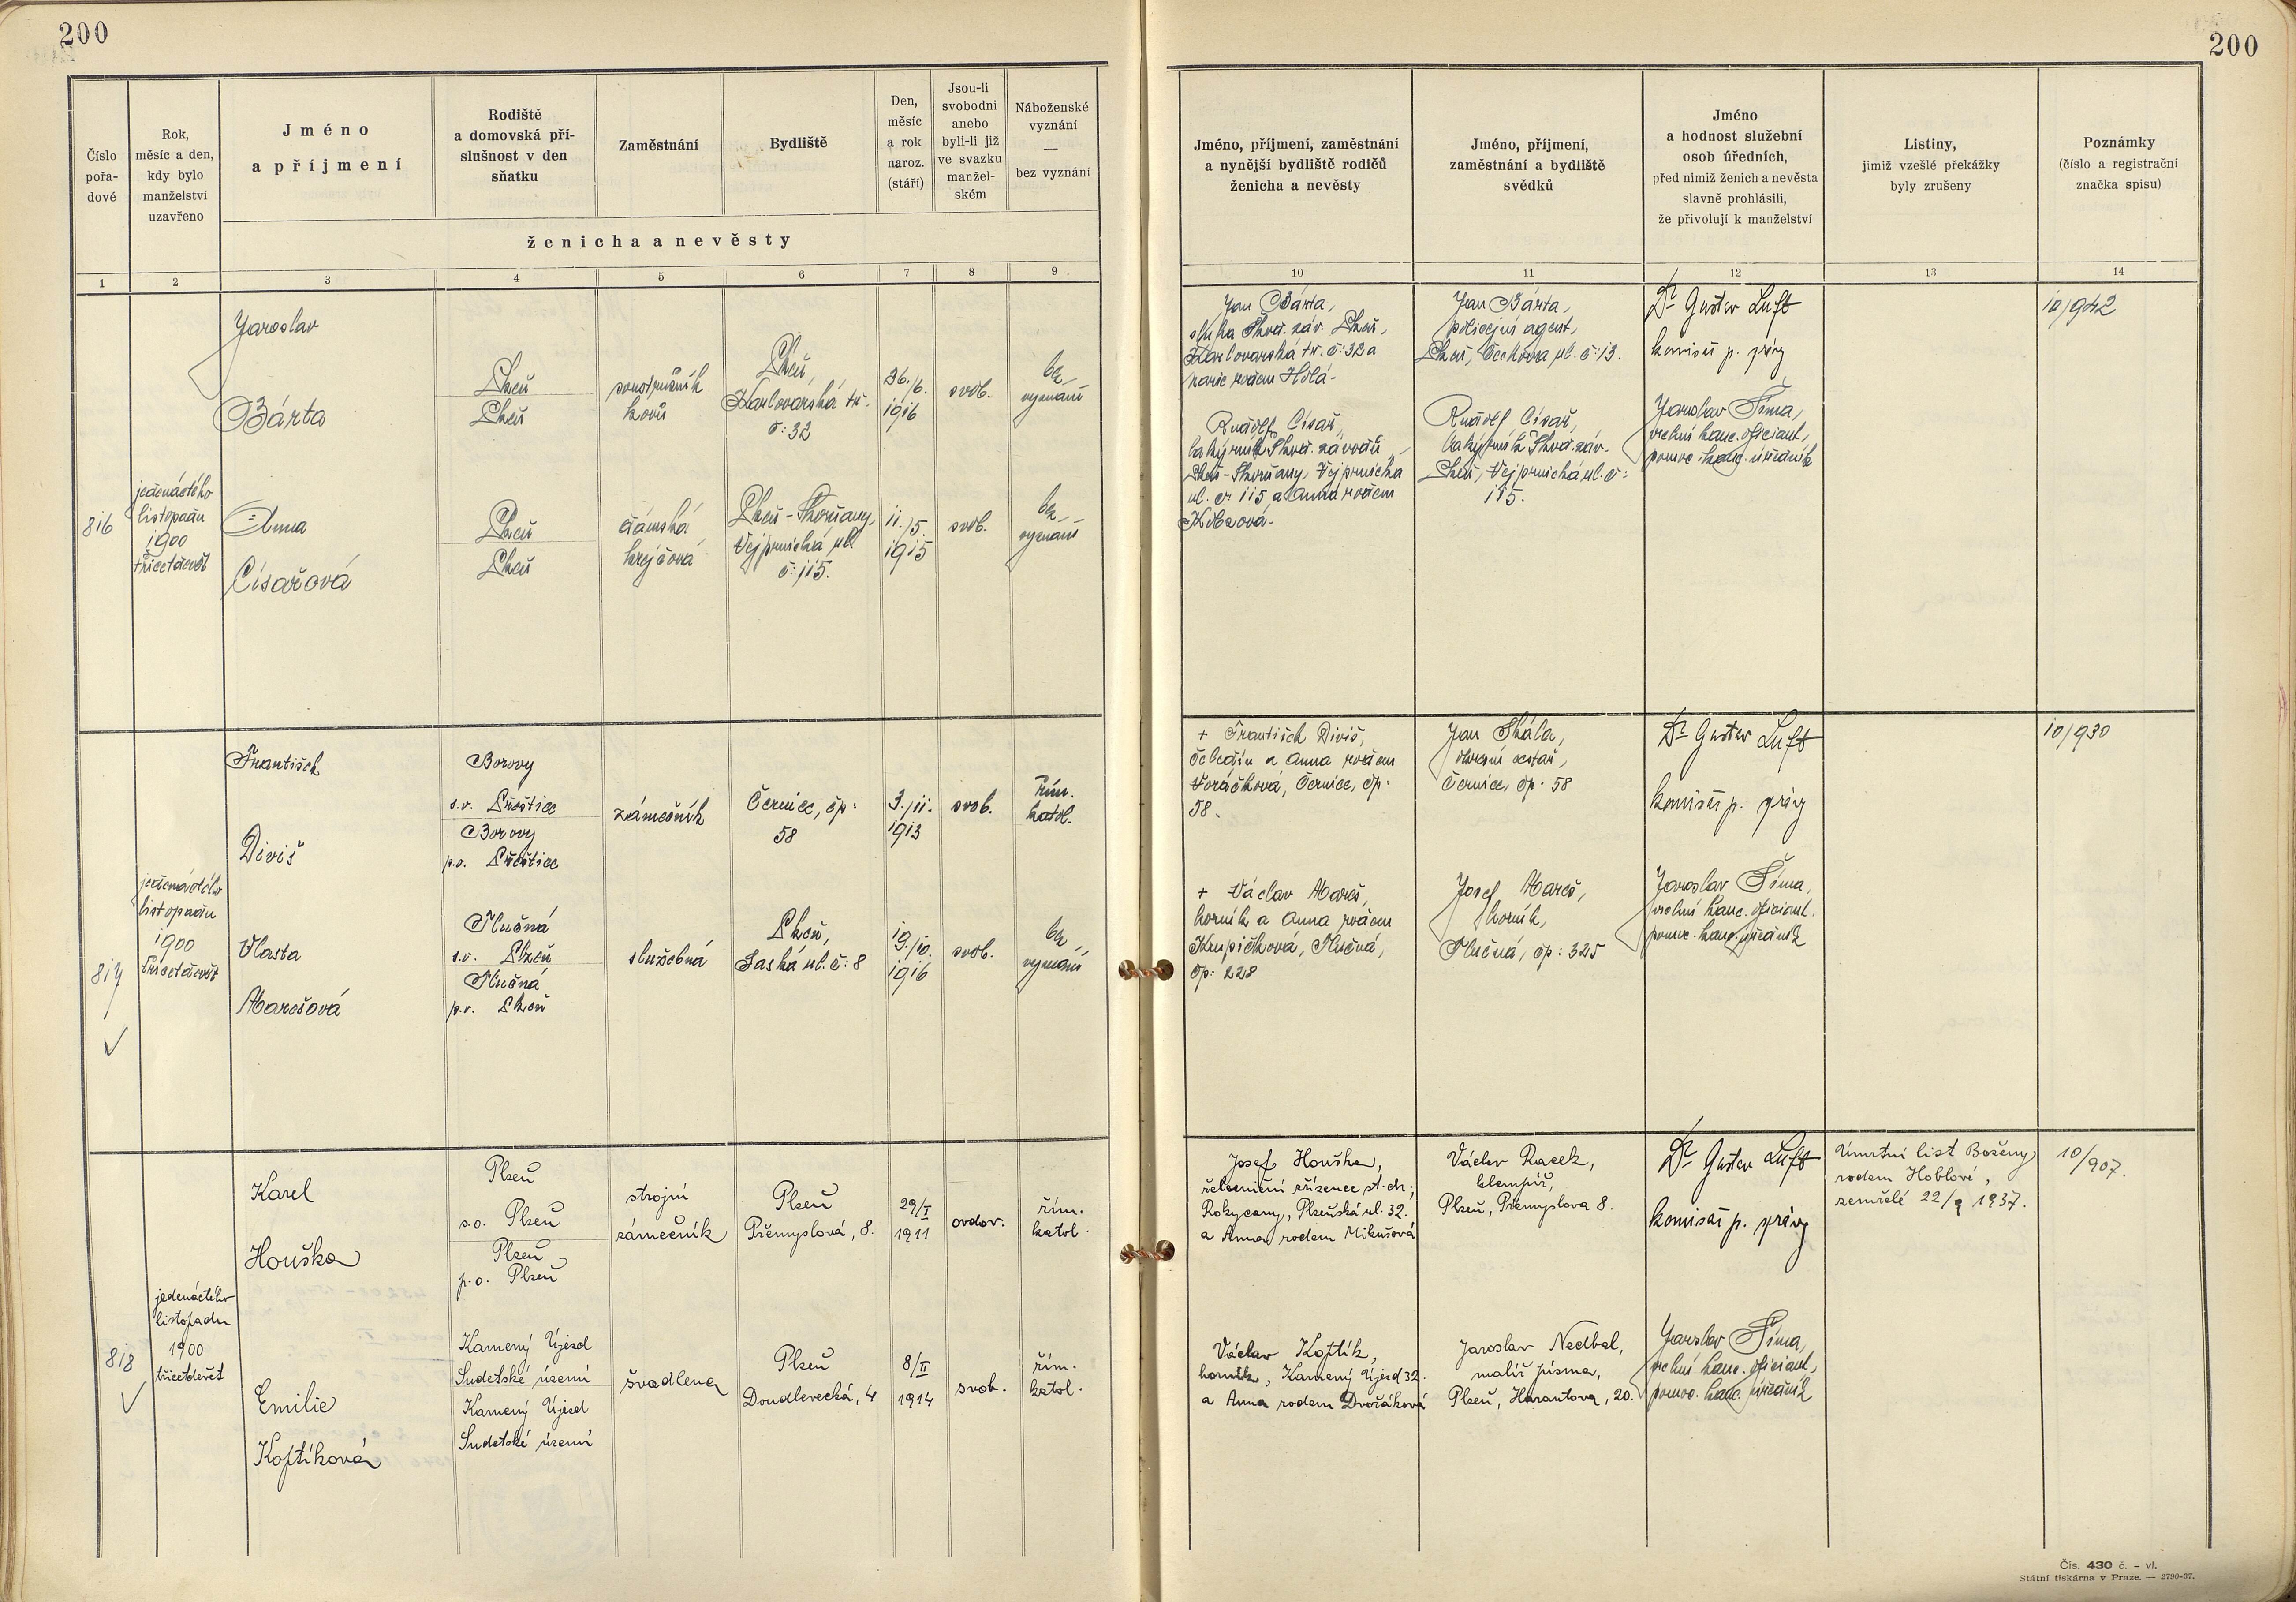 200
200
Číslo
pořa-
dové
Rok,
měsíc a den,
kdy bylo
manželství
uzavřeno
Jméno
a příjmení
Rodiště
a domovská pří-
slušnost v den
sňatku
Zaměstnání
Bydliště
Den,
měsíc
a rok
naroz.
(stáří)
Jsou-li
svobodni
anebo
byli-li již
ve svazku
manžel-
ském
Náboženské
vyznání
—
bez vyznání
ženicha a nevěsty
Jméno, příjmení, zaměstnání
a nynější bydliště rodičů
ženicha a nevěsty
Jméno, příjmení,
zaměstnání a bydliště
svědků
Jméno
a hodnost služební
osob úředních,
před nimiž ženich a nevěsta
slavně prohlásili,
že přivolují k manželství
Listiny,
jimiž vzešlé překážky
byly zrušeny
Poznámky
(číslo a registrační
značka spisu)
1 2 3 4 5 6 7 8 9 10 11 12 13 14
816
jedenáctého
listopadu
1900
třicetdevět
Jaroslav
Bárta
Plzeň
Plzeň
soustružník
kovů
Plzeň,
Karlovarská tř.
č: 32
26./6.
1916
svob.
bez
vyznání
Anna
Císařová
Plzeň
Plzeň
dámská
krejčová
Plzeň-Skvrňany,
Vejprnická ul.
č: 115.
11./5.
1915
svob.
bez
vyznání
Jan Bárta,
sluha Škod. záv. Plzeň,
Karlovarská tř. č: 32 a
Marie rodem Holá.
Rudolf Císař,
Škod. závodů,
Plzeň-Skvrňany, Vejprnická
ul. č. 115 a Anna rodem
Jan Bárta,
policejní agent,
Plzeň, Čechova ul. č: 13.
Rudolf Císař,
Škod. záv.
Plzeň, Vejprnická ul. č:
115.
Dr Gustav Luft
komisař p. správy
Jaroslav Šíma,
vrchní kanc. oficiant,
pomoc. kanc. úředník
10/942
817
jedenáctého
listopadu
1900
třicetdevět
František
Diviš
Borovy
s.o. Přeštice
Borovy
p.o. Přeštice
zámečník
Černice, čp:
58
3./11.
1913
svob.
Řím.
katol.
Vlasta
Marešová
Tlučná
s.o. Plzeň
Tlučná
p.o. Plzeň
služebná
Plzeň,
Saská ul. č: 8
19./10.
1916
svob.
bez
vyznání
+ František Diviš,
čeledín a Anna rodem
Voráčková, Černice, čp:
58.
+ Václav Mareš,
horník a Anna rodem
Krupičková, Tlučná,
čp: 228
Jan Skála,
okresní cestář,
Černice, čp: 58
Josef Mareš,
horník,
Tlučná, čp: 325
Dr Gustav Luft
komisař p. správy
Jaroslav Šíma,
vrchní kanc. oficiant.
pomoc. kanc. úředník
10/930
818
jedenáctého
listopadu
1900
třicetdevět
Karel
Houška
Plzeň
s.o. Plzeň
Plzeň
p.o. Plzeň
strojní
zámečník
Plzeň
Přemyslová, 8.
29/I
1911
ovdov.
řím.
katol.
Emilie
Koptíková
Kamený Újezd
Sudetské území
Kamený Újezd
Sudetské území
švadlena
Plzeň
Doudlevecká, 4
8/II
1914
svob.
řím.
katol.
Josef Houška,
železniční zřízenec st. dr.;
Rokycany, Plzeňská ul. 32.
a Anna rodem Mikušová
Václav Koptík,
horník, Kamený Újezd 32.
a Anna rodem Dvořáková
Václav Racek,
klempíř,
Plzeň, Přemyslova 8.
Jaroslav Nedbal,
malíř písma,
Plzeň, Harantova, 20.
Dr Gustav Luft
komisař p. správy
Jaroslav Šíma,
vrchní kanc. oficiant,
pomoc. kanc. úředník
Úmrtní list Boženy
rodem Hoblové,
zemřelé 22/9 1937.
10/907.
Čís. 430 č. - vl.
Státní tiskárna v Praze. — 2790-37.